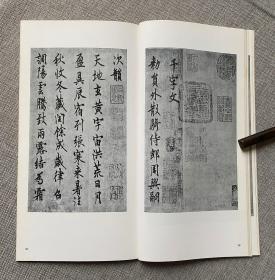 千字文
勅員外散騎侍郎周興嗣
次韻
天地玄黃宇宙洪荒日月
盈昃辰宿列張寒來暑往
秋收冬藏閏餘成歲律召
調陽雲騰致雨露結為霜